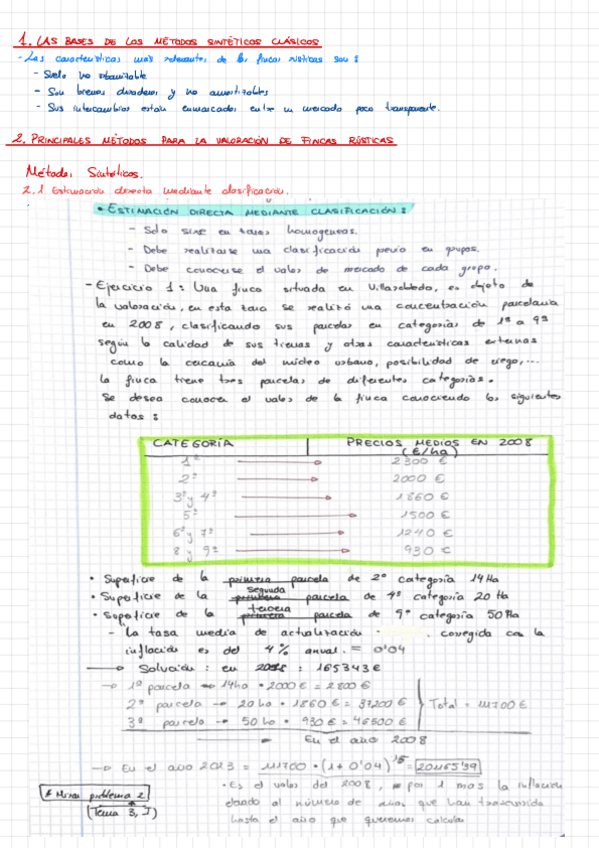 1. LAS BASES DE LOS MÉTODOS SINTÉTICOS CLÁSICOS
- Las características más relevantes de las fincas rústicas son:
- Suelo no urbanizable
- Son bienes duraderos y no amortizables
- Sus intercambios están enmarcados entre un mercado poco transparente.
2. PRINCIPALES MÉTODOS PARA LA VALORACIÓN DE FINCAS RÚSTICAS
Métodos Sintéticos.
2.1 Estimación directa mediante clasificación.
• ESTIMACIÓN DIRECTA MEDIANTE CLASIFICACIÓN:
- Solo sirve en zonas homogéneas.
- Debe realizarse una clasificación previa en grupos.
- Debe conocerse el valor de mercado de cada grupo.
- Ejercicio 1: Una finca situada en Villarrobledo, es objeto de
la valoración, en esta zona se realizó una concentración parcelaria
en 2008, clasificando sus parcelas en categorías de 1ª a 9ª
según la calidad de sus tierras y otras características externas
como la cercanía del núcleo urbano, posibilidad de riego,...
la finca tiene tres parcelas de diferentes categorías.
Se desea conocer el valor de la finca conociendo los siguientes
datos:
CATEGORÍA PRECIOS MEDIOS EN 2008
(€/ha)
1ª → 2300 €
2ª → 2000 €
3ª y 4ª → 1860 €
5ª → 1500 €
6ª y 7ª → 1240 €
8 y 9ª → 930 €
• Superficie de la primera parcela de 2ª categoría 14 Ha
• Superficie de la segunda parcela de 4ª categoría 20 Ha
• Superficie de la tercera parcela de 9ª categoría 50 Ha
- La tasa media de actualización corregida con la
inflación es del 4% anual. = 0'04
→ Solución: en : 165343 €
→ 1ª parcela → 14ha • 2000 € = 2800 €
2ª parcela → 20 ha • 1860 € = 37200 € Total = 111700 €
3ª parcela → 50 ha • 930 € = 46500 €
→ En el año 2008
→ En el año 2023 = 111700 • (1 + 0'04)¹⁵ = 201165'39
• Es el valor del 2008, por 1 más la inflación
elevado al número de años que han transcurrido
hasta el año que queremos calcular
* Mirar problema 2
(Tema 3, I)